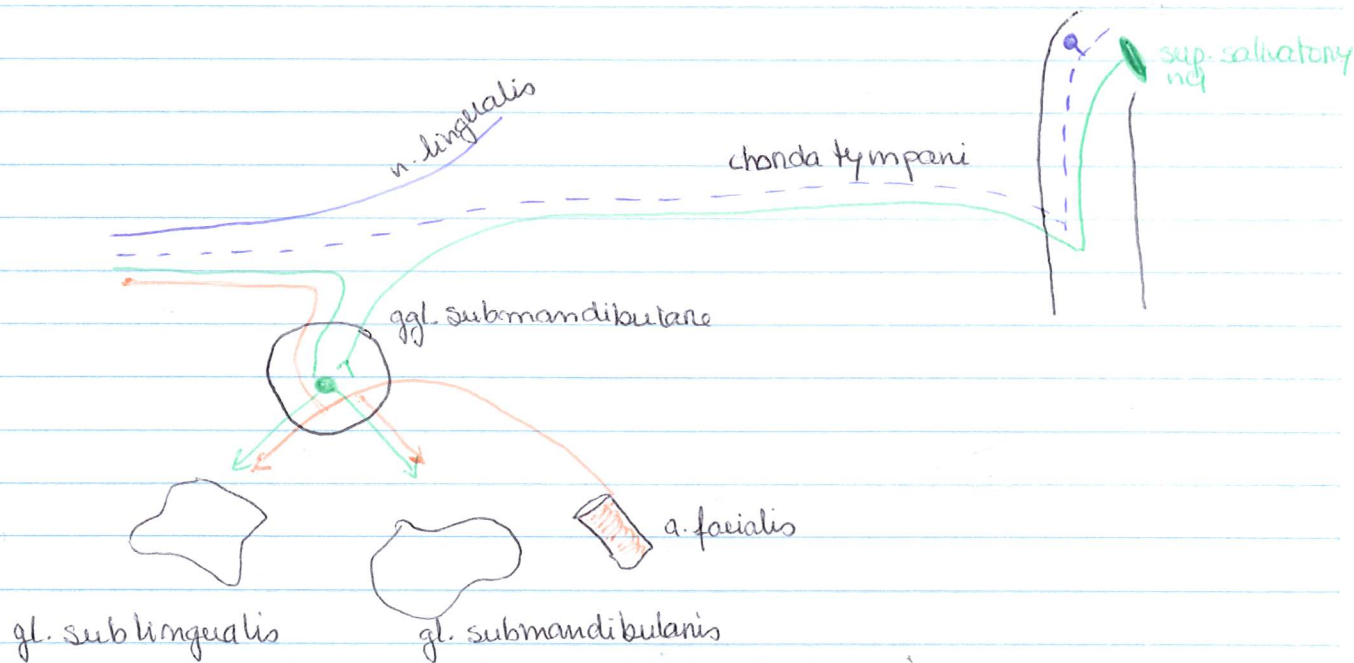 sup. salivatory
ncl
n. lingualis
chorda tympani
ggl. submandibulare
a. facialis
gl. sublingualis
gl. submandibularis